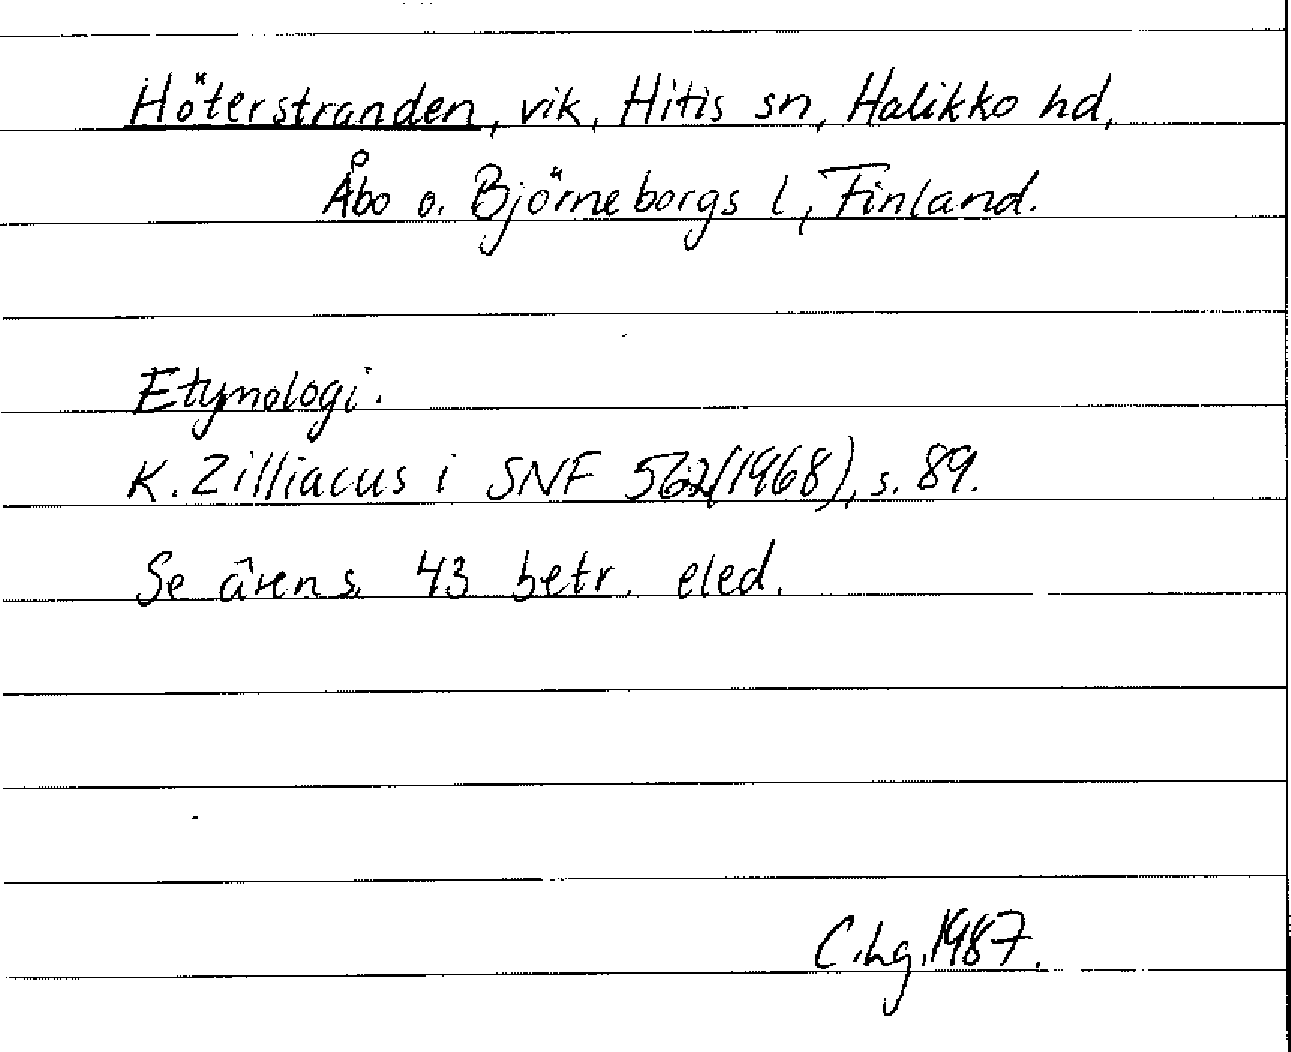 Höterstranden, vik, Hitis sn, Halikko hd,
Åbo o. Björneborgs l, Finland.
Etymologi.
K. Zilliacus i SNF 562(1968), s. 89.
Se även s. 43 betr. eled.
C.hg.1987.